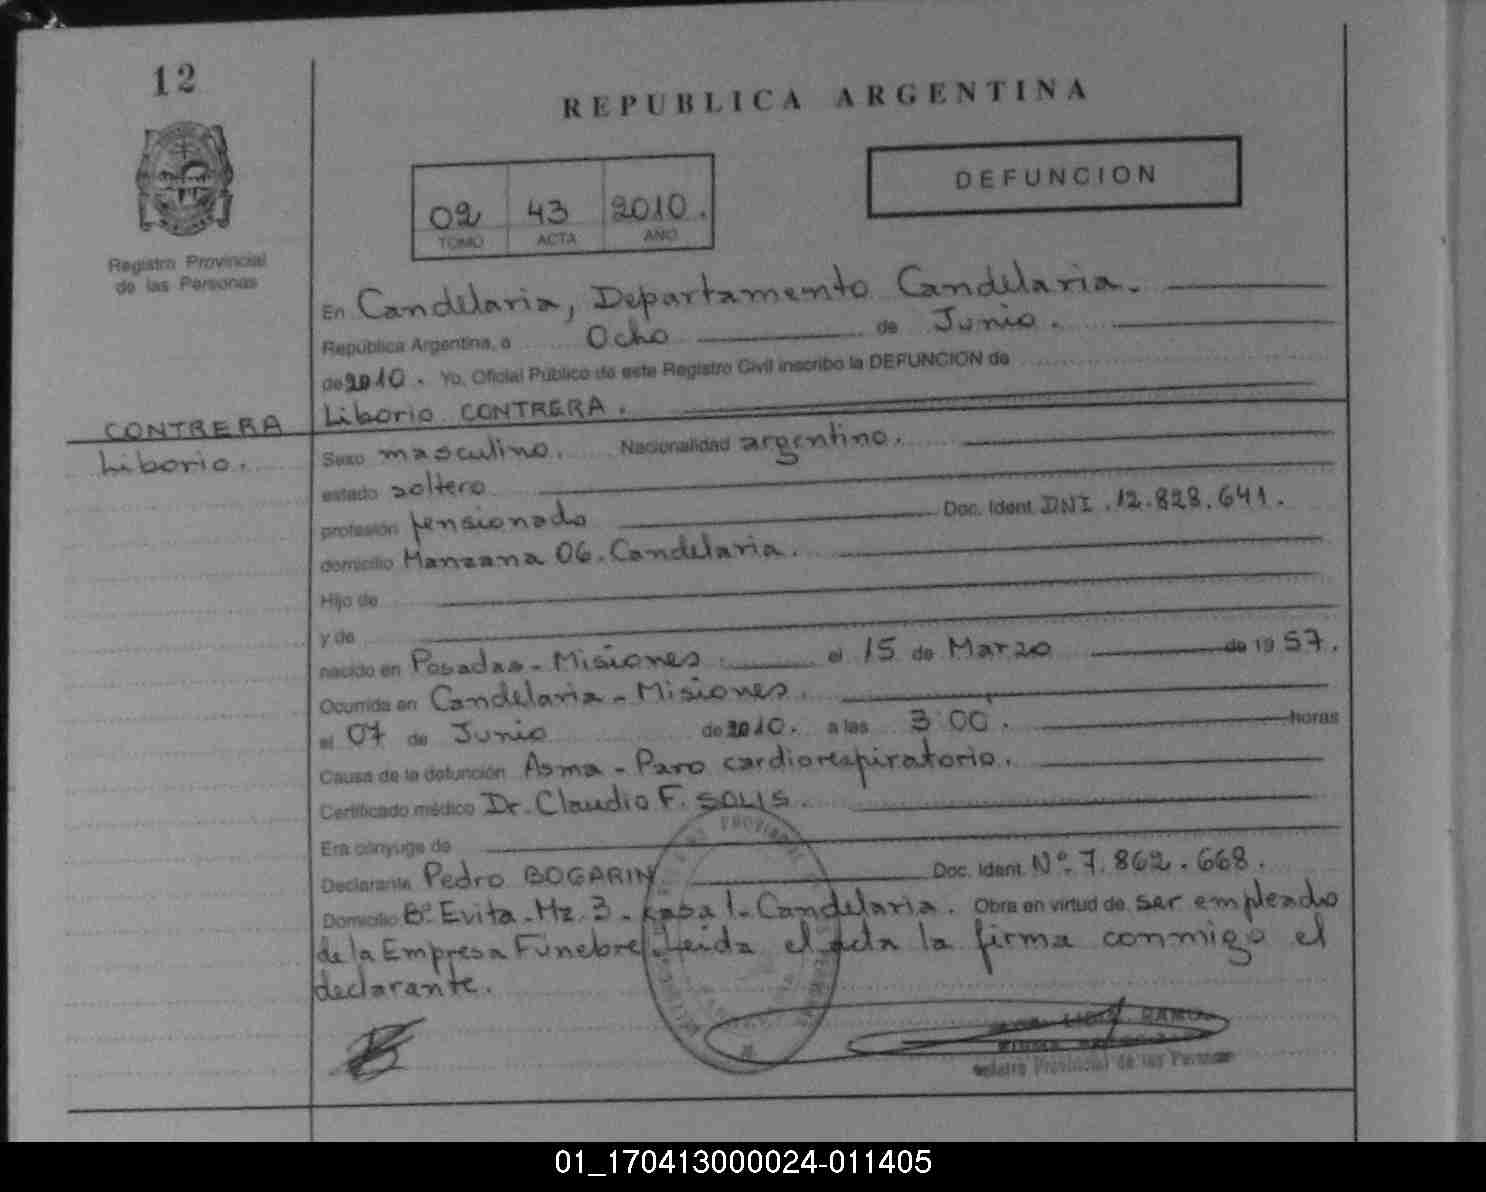 12
REPUBLICA ARGENTINA
DEFUNCION
02 43 2010.
TOMO ACTA AÑO
Registro Provincial
de las Personas
En Candelaria, Departamento Candelaria.
República Argentina, a Ocho de Junio.
de 2010. Yo, Oficial Público de este Registro Civil inscribo la DEFUNCION de
Liborio CONTRERA.
CONTRERA
Liborio.
Sexo masculino. Nacionalidad argentino.
estado soltero
profesión pensionado Doc. Ident. DNI. 12.828.641.
domicilio Manzana 06. Candelaria.
Hijo de
y de
nacido en Posadas - Misiones. el 15 de Marzo de 1957.
Ocurrida en Candelaria - Misiones.
el 07 de Junio de 2010. a las 3:00. horas
Causa de la defunción Asma - Paro cardiorespiratorio.
Certificado médico Dr. Claudio F. SOLIS.
Era cónyuge de
Declarante Pedro BOGARIN Doc. Ident. Nº. 7.862.668.
Domicilio Bº Evita - Mz. 3 - casa 1 - Candelaria. Obra en virtud de ser empleado
de la Empresa Funebre. Leida el acta la firma conmigo el
declarante.
Provincial de las Personas
01_170413000024-011405